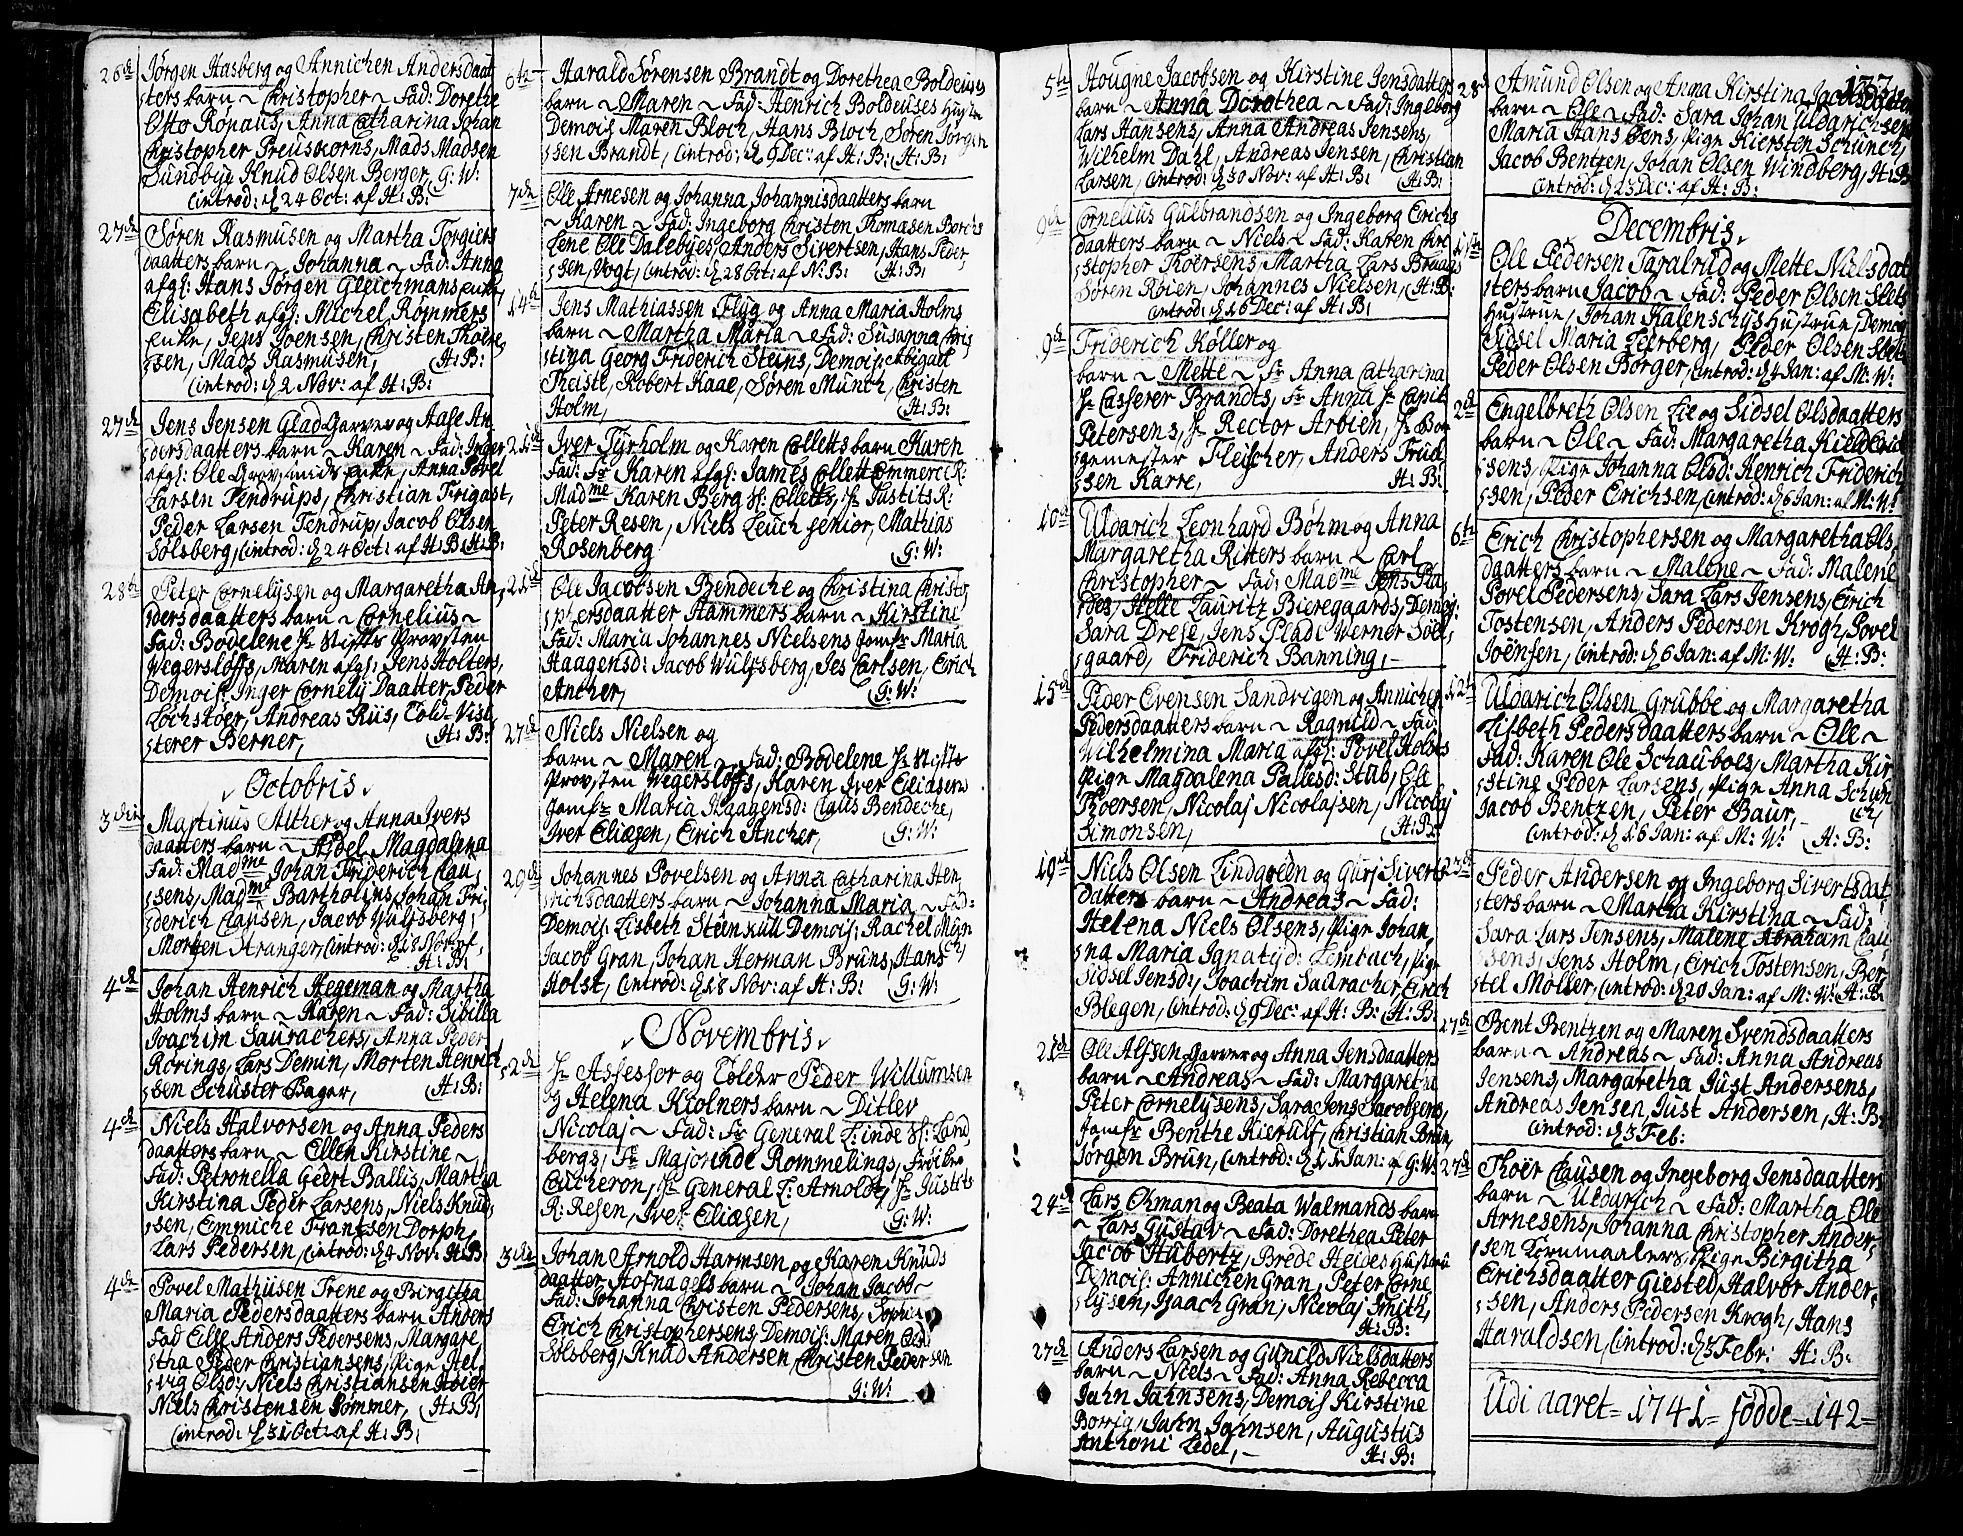 26de Jørgen Hasberg og Annichen Andersdaat
sters barn ~ Christopher ~ Fad: Dorethe
Otto Ropaus, Anna Catharina Johan
Christopher Preuskorns, Mads Madsen
Sundbye Knud Olsen Berger, G: W:
Introd: d 24 Oct: af H: B:
27de Søren Rasmusen og Martha Torgiers
daatters barn ~ Johanna ~ Fad: Anna
afgl: Hans Jørgen Gleichmans enke,
Elisabeth afgl: Michel Rømmers
enke, Jens Joensen, Christen Thore,
sen, Mads Rasmusen, H: B:
Introd: d 2 Nov: af H: B:
27de Jens Jensen Glad Garver og Aase An,
dersdaatters barn ~ Karen ~ Fad: Inger
afgl: Ole Grovsmids Enke, Anna Povel
Larsen Tendrups, Christian Frigast,
Peder Larsen Tendrup, Jacob Olsen
Solsberg, Introd: d 24 Oct: af H: B: H: B:
28de Peter Cornelysen og Margaretha An,
dersdaatters barn ~ Cornelius ~
Fad: Bodelene Hr Stifts Provsten
Wegersløffs, Maren afgl: Jens Holters,
Demois: Inger Cornely Daatter, Peder
Løchstøer, Andreas Riis, Told-Visi,
sterer Berner, H: B:
Octobris
3die Martinus Alther og Anna Ivers
daatters barn ~ Aidel Magdalena
Fad: Madme Johan Friderich Clau,
sens, Madme Bartholins, Johan Fri,
derich Clausen, Jacob Wulfsberg,
Morten Stranger, Introd: d 8 Nov: af,
H: B:
4de Johan Henrich Hegeman og Martha
Holms barn ~ Karen ~ Fad: Sibilla
Joachim Saurachers, Anna Peder
Rorings, Lars Demin, Morten Henrich
sen Schuster Bager, H: B:
4de Niels Halvorsen og Anna Peders
daatters barn ~ Ellen Kirstine ~
Fad: Petronella Geert Ballis, Martha
Kirstina Peder Larsens, Niels Knud,
sen, Emmiche Frantsen Dorph,
Lars Pedersen, Introd: d 4 Nov: H: B:
4de Povel Mathiisen Trene og Birgitha
Maria Pedersdaatters barn Anders
Fad Else Anders Pedersens, Margare
tha Peder Christiansens, Pige Hel,
vig Olsd: Niels Christiansen Høier
Niels Christensen Sommer, H: B:
Introd: d 31 Oct: af H: B:
6te Harald Sørensen Brandt og Dorethea Boldeuses
barn ~ Maren ~ Fad: Henrich Boldeuses Hustru
Demois: Maren Bloch, Hans Bloch, Søren Jørgen
sen Brandt, Introd: d 9 Dec: af H: B: H: B:
7de Ole Arnesen og Johanna Johannisdaatters barn
~ Karen ~ Fad: Ingeborg Christen Thomasen Borchs
Lene Ole Dalebyes, Anders Sivertsen, Hans Peder,
sen, Vogt, Introd: d 28 Oct: af N: B: H: B:
14de Jens Mathiassen Flyg og Anna Maria Holms
barn ~ Martha Maria ~ Fad: Susanna Chris
tina Georg Friderich Steins, Demois: Abigael
Theiste, Robert Kaae, Søren Münch, Christen
Holm, H: B:
21de Iver Tyrholm og Karen Colletts barn Karen
Fad: Fr Karen afgl: James Collett Commerce R:
Madme Karen Berg Sl: Colletts, Hr Justits R:
Peter Resen, Niels Leuch senior, Mathias
Rosenberg G: W:
21de Ole Jacobsen Bendeche og Christina Christo,
phersdaatter Hammers barn ~ Kirstine
Fad: Maria Johannes Nielsens Jomfr Maria
Haagensd: Jacob Wulfsberg, Jes Carlsen, Erich
Ancher, G: W:
27de Niels Nielsen og
barn ~ Maren ~ Fad: Bodelene Hr Stifts
Provsten Wegersløffs, Karen Iver Eliasens
Jomfr Maria Haagensd: Claus Bendeche,
Iver Eliesen, Erich Ancher, G: W:
29de Johannes Povelsen og Anna Catharina Hen,
richsdaatters barn ~ Johanna Maria ~ Fad:
Demois: Lisbeth Steenkull Demois: Rachel Mün
Jacob Gran, Johan Herman Bruns, Hans ch,
Holst, Introd: d 18 Nov: af H: B: G: W:
Novembris
2de Hr Assessor og Tolder Peder Willumsen
og Helena Kiolners barn ~ Ditlev
Nicolaj ~ Fad: Fr General Linde Sl: Land
bergs, Fr Majorinde Rommelings, Frøiken
Coucheron, Hr General L: Arnoldt, Hr Justits
R: Resen, Iver Eliesen, G: W:
3die Johan Arnold Harmsen og Karen Knuds
daatter Hofnagels barn ~ Johan Jacob ~
Fad: Johanna Christen Pedersens, Sophia
Erich Christophersens, Demois: Maren
Solsberg, Knud Andersen, Christen Pedersen
G: W:
5te Hougne Jacobsen og Kirstine Jensdatters
barn ~ Anna Dorothea ~ Fad: Ingeborg
Lars Hansens, Anna Andreas Jensens,
Wilhelm Dahl, Andreas Jensen, Christian
Larsen, Introd: d 30 Nov: af H: B: H: B:
9de Cornelius Gulbrandsen og Ingeborg Erichs
daatters barn ~ Niels ~ Fad: Karen Chri
stopher Thoersens, Martha Lars Braags
Søren Roien, Johannes Nielsen, H: B:
Introd: d 16 Dec: af H: B:
9de Friderich Koller og
barn ~ Mette ~ Fr Anna Catharina
Hr Casserer Brandts, Fr Anna Hr Capit
Petersens, Hr Rector Arbien, Hr Bor
gemester Fleischer, Anders Frud
sen Karre, H: B:
10de Uldarich Leonhard Bøhm og Anna
Margaretha Ritters barn ~ Carl
Christopher ~ Fad: Madme Jens Pla
des, Helle Lauritz Bieregaards, Demois:
Sara Drese, Jens Plade Werner Søel,
gaard, Friderich Banning, —
15de Peder Evensen Sandvigen og Annichen
Pedersdaatters barn ~ Ragnild ~ Fad:
Wilhelmina Maria afgl: Povel Holsts
Pige Magdalena Pallesd: Stab, Ole
Roersen, Nicolaj Nicolajsen, Nicolaj
Simonsen, H: B:
19de Niels Olsen Lindgreen og Gurj Siverts
datters barn ~ Andreas ~ Fad:
Helena Niels Olsens, Pige Johan
na Maria Ignatyd: Lembach, Pige
Sidsel Jensd:, Joachim Sauracher, Erich
Blegen, Introd: d 9 Dec: af H: B: H: B:
21de Ole Alfsen Garver og Anna Jensdaatters
barn ~ Andreas ~ Fad: Margaretha
Peter Cornelysens, Sara Jens Jacobsens,
Jomfr Benthe Kierulf, Christian Brun,
Jørgen Brun, Introd: d 1 Jan: af G: W:
24de Lars Ekman og Beata Walmands barn
~ Lars Gustav ~ Fad: Dorethea Peter
Jacob Hubertz, Brede Heides Hustru
Demois: Annichen Gran, Peter Corne
lysen, Isaach Gran, Nicolaj Smith,
H: B:
27de Anders Larsen og Gunild Nielsdatters
barn ~ Niels ~ Fad: Anna Rebecca
Jahn Jahnsens, Demois Kirstine
Borrig, Jahn Jahnsen, Augustus
Anthoni Lede, — H: B:
28de Amund Olsen og Anna Kirstina Jacobsdatters
barn ~ Ole ~ Fad: Sara Johan Uldarichsen
Maria Hans Oens, Pige Kiersten Schunch,
Jacob Bentzen, Johan Olsen Windberg, H: B:
Introd: d 23 Dec: af H: B:
Decembris
Ole Pedersen Taralrud og Mette Nielsdat
ters barn Jacob ~ Fad: Peder Olsen Slets
Hustrue, Johan Kalenschys Hustrue, Demois
Sidsel Maria Leerberg, Peder Olsen Slet
Peder Olsen Borger, Introd: d 4 Jan: af M: W:
2de Engelbreth Olsen Lie og Sidsel Olsdaatters
barn ~ Ole ~ Fad: Margaretha Kield Erich
sens, Pige Johanna Olsd: Henrich Friderich
sen, Peder Erichsen, Introd: d 6 Jan: af M: W:
6te Erich Christophersen og Margaretha Ols,
daatters barn ~ Malene ~ Fad: Malene
Povel Pedersens, Sara Lars Jensens, Erich
Tostensen, Anders Pedersen Krogh, Povel
Joensen, Introd: d 6 Jan: af M: W: H: B:
12te Uldarich Olsen Grubbe og Margaretha
Lisbeth Pedersdaatters barn ~ Ole ~
Fad: Karen Ole Schaubols, Martha Kir
stine Peder Larsens, Pige Anna Schun
Jacob Bentzen, Peter Baur, — ch,
Introd: d 16 Jan: af M: W: H: B:
23de Peder Andersen og Ingeborg Sivertsdat,
ters barn ~ Martha Kirstina ~ Fad:
Sara Lars Jensens, Malene Abraham Clau
sens, Jens Holm, Erich Tostensen, Ber,
tel Møller, Introd: d 20 Jan: af M: W: H: B:
27de Bent Bentzen og Maren Svendsdaatters
barn ~ Andreas ~ Fad: Anna Andreas
Jensens, Margaretha Just Andersens,
Andreas Jensen, Just Andersen, H: B:
Introd: d 3 Feb:
27de Thoer Clausen og Ingeborg Jensdaatters
barn ~ Uldarich ~ Fad: Martha Ole
Arnesens, Johanna Christopher Ander,
sen Kornmaalers, Pige Birgitha
Erichsdaatter Giested, Halvor Ander,
sen, Anders Pedersen Krogh, Hans
Haraldsen, Introd: d 3 Febr: H: B:
Udi aaret = 1741 = fødde = 142 =